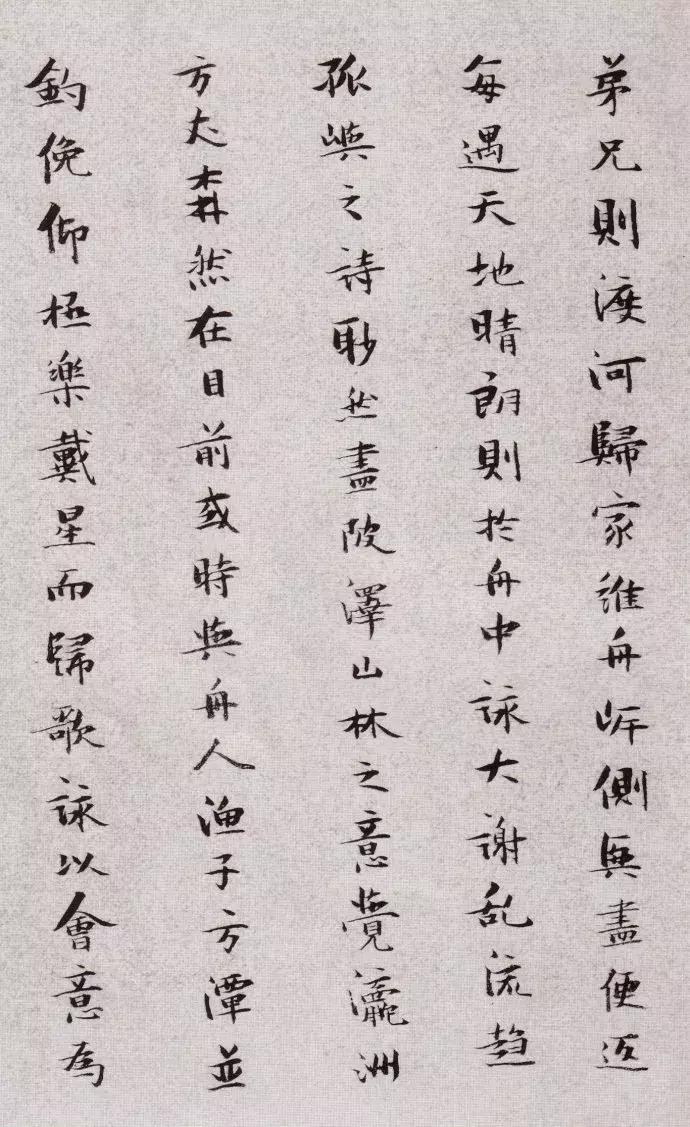 弟兄則渡河歸家維舟岸側興盡便返
每遇天地晴朗則於舟中詠大謝乱流趨
孤嶼之詩眇然盡陂澤山林之意覺瀛洲
方丈森然在目前或時與舟人漁子方潭並
釣俛仰極樂戴星而歸歌詠以會意為